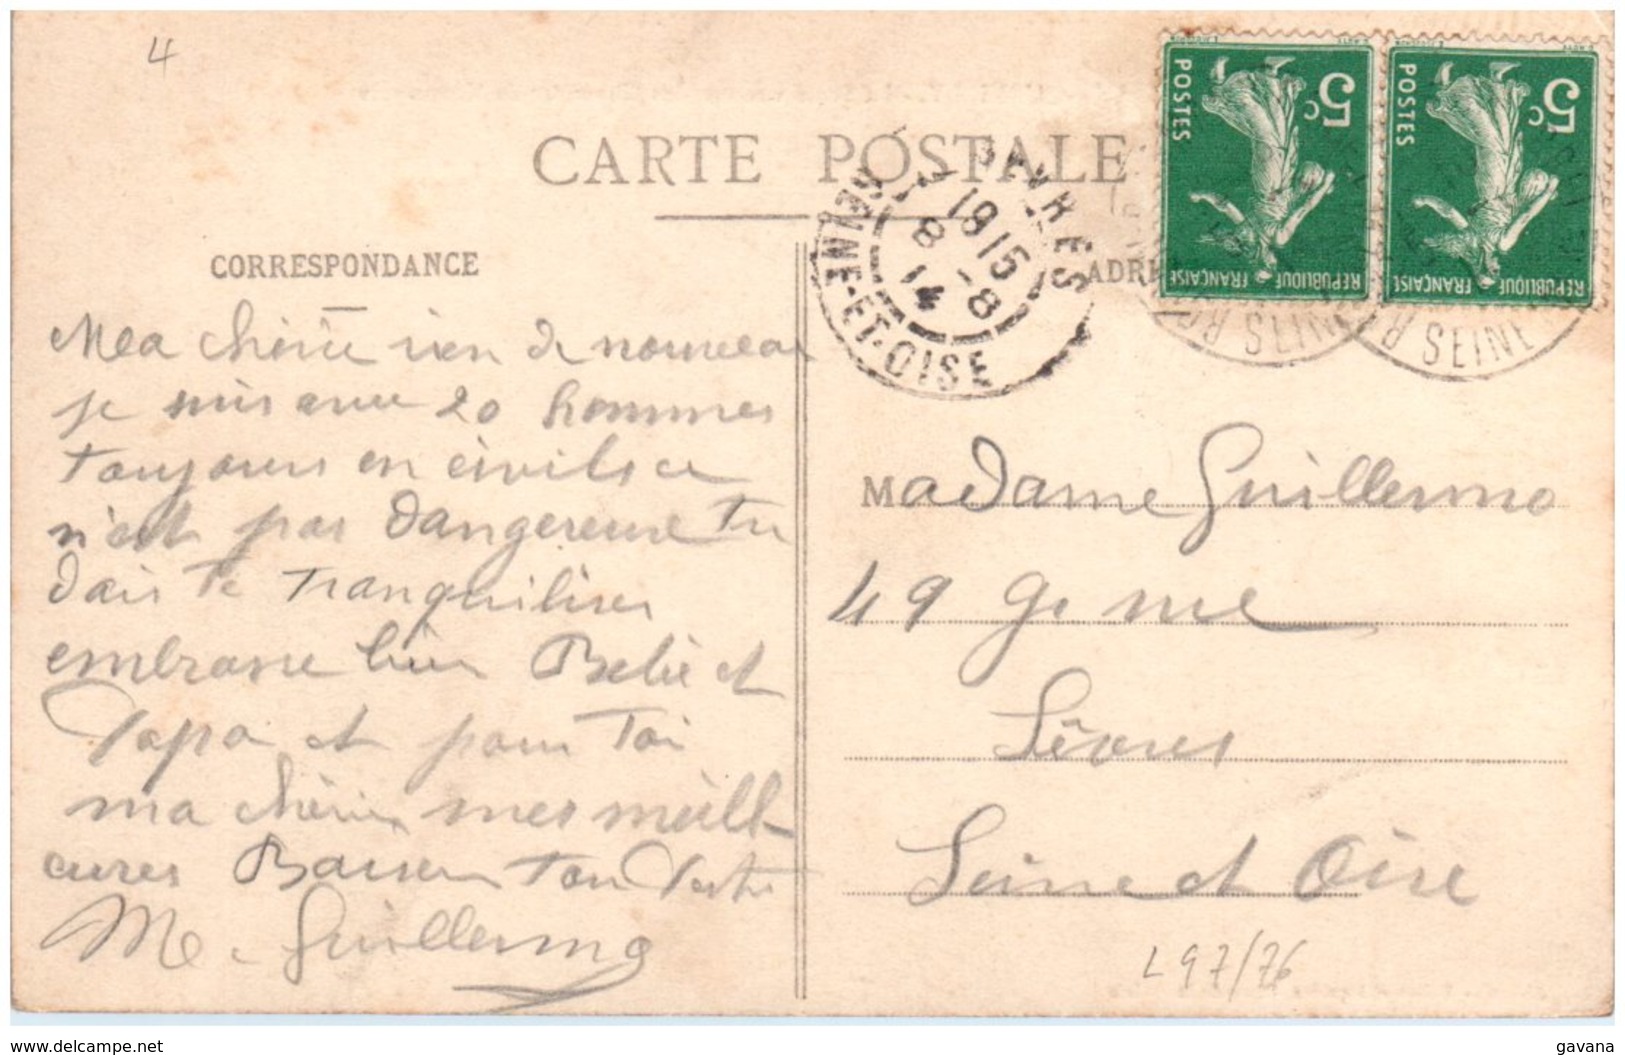 4
CARTE POSTALE
CORRESPONDANCE
Ma chérie rien de nouveau
je suis avec 20 hommes
toujours en civils ce
n'est pas dangereuse tu
dois te tranquiliser
embrasse bien Bebé et
Papa et pour toi
ma chérie mes meill
eures Baisers ton
M. Guillermo
5c
POSTES
REPUBLIQUE FRANÇAISE
5c
POSTES
REPUBLIQUE FRANÇAISE
SEVRES
1915
8 -8
14
SEINE-ET-OISE
SEINE
Madame Guillermo
49 gde rue
Sèvres
Seine et Oise
L97/76
www.delcampe.net
gavana